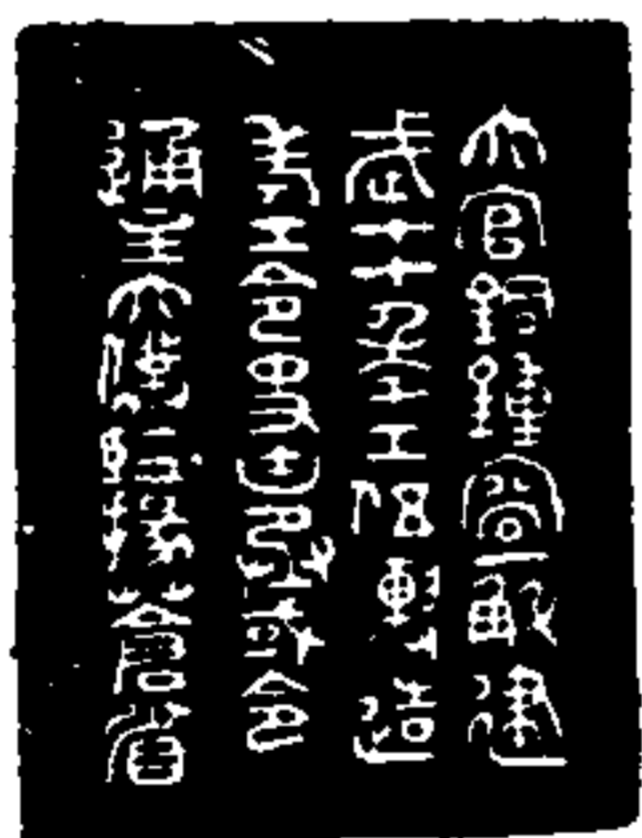 大官銅鍾容一斛建
武廿年工伍造
考工令史由丞或令
通主大僕監掾蒼省